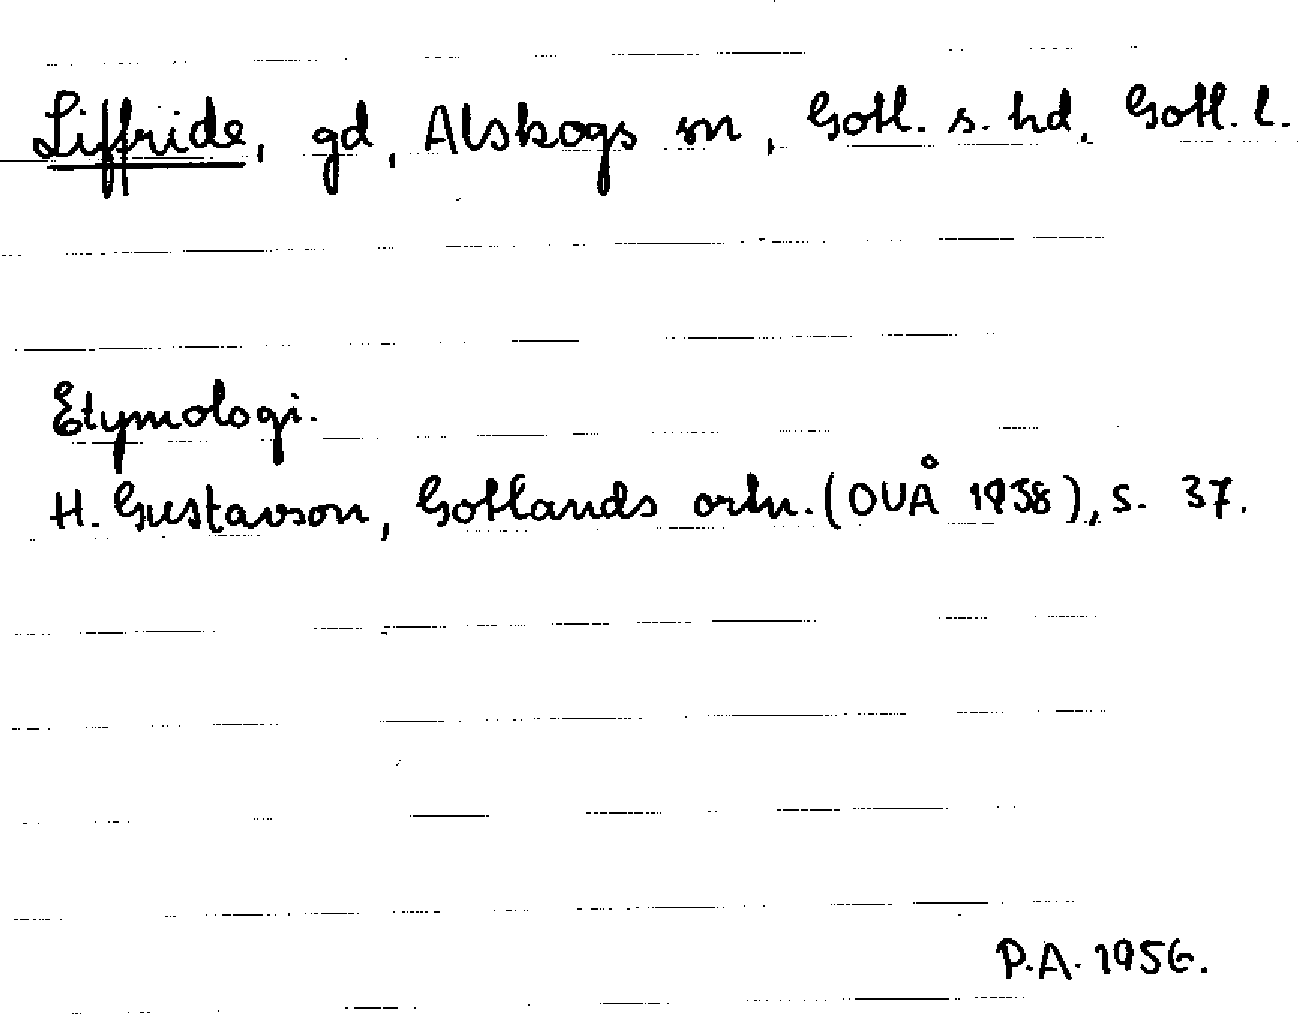 Liffride, gd, Alskogs sn, Gotl. s. hd, Gotl. l.
Etymologi.
H. Gustavson, Gotlands ortn. (OUÅ 1938), s. 37.
P.A. 1956.